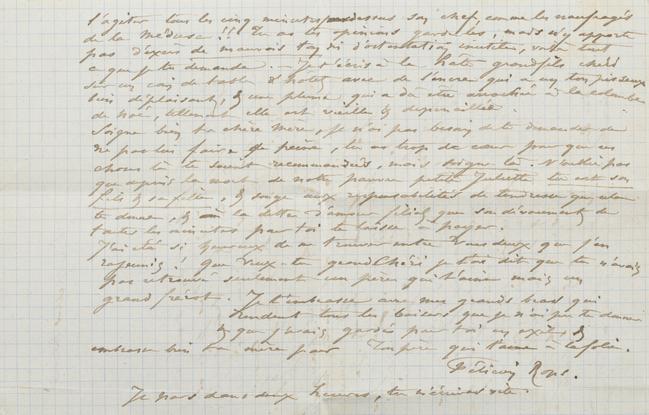 s'agiter tous les cinq minutes au dessus son chef comme les naufragés
de la méduse!! Tu as les opinions garde les, mais n'y apporte
pas d'excès de mauvais ton, ni d'ostentation inutiles, voilà tout
ce que je te demande. — Je t'écris à la hâte grandfils chéri
sur un coin de table d'hotel avec de l'encre qui a un ton pisseux
bien déplaisant, & une plume qui a dû être arrachée à la colombe
de Noé, tellement elle est vieille & déplumaillée.
Soigne bien ta chère mère, je n'ai pas besoin de te demander de
ne pas lui faire de peine, tu as trop de cœur pour que ces
choses là te soient recommandées, mais soigne la. N'oublie pas
que depuis la mort de notre pauvre petite Juliette tu est son
fils & sa fille, & songe aux responsabilités de tendresse que cela
te donne, & à la dette d'amour filial que son dévouement de
toutes les minutes par toi te laisse à payer.
J'ai été si heureux de me trouver entre vous deux que j'en
rajeunis! Que veux-tu grand Chéri je t'ai dit que tu n'avais
pas retrouvé seulement un père qui t'aime mais un
grand frérot. Je t'embrasse avec mes grands bras qui
rendent tous les baisers que je n'ai pu te donner
& que j'avais gardés pour toi en exil, &
embrasse bien ta mère pour Ton père qui t'aime à la folie.
Félicien Rops.
Je pars dans deux heures, tu m'écriras vite.